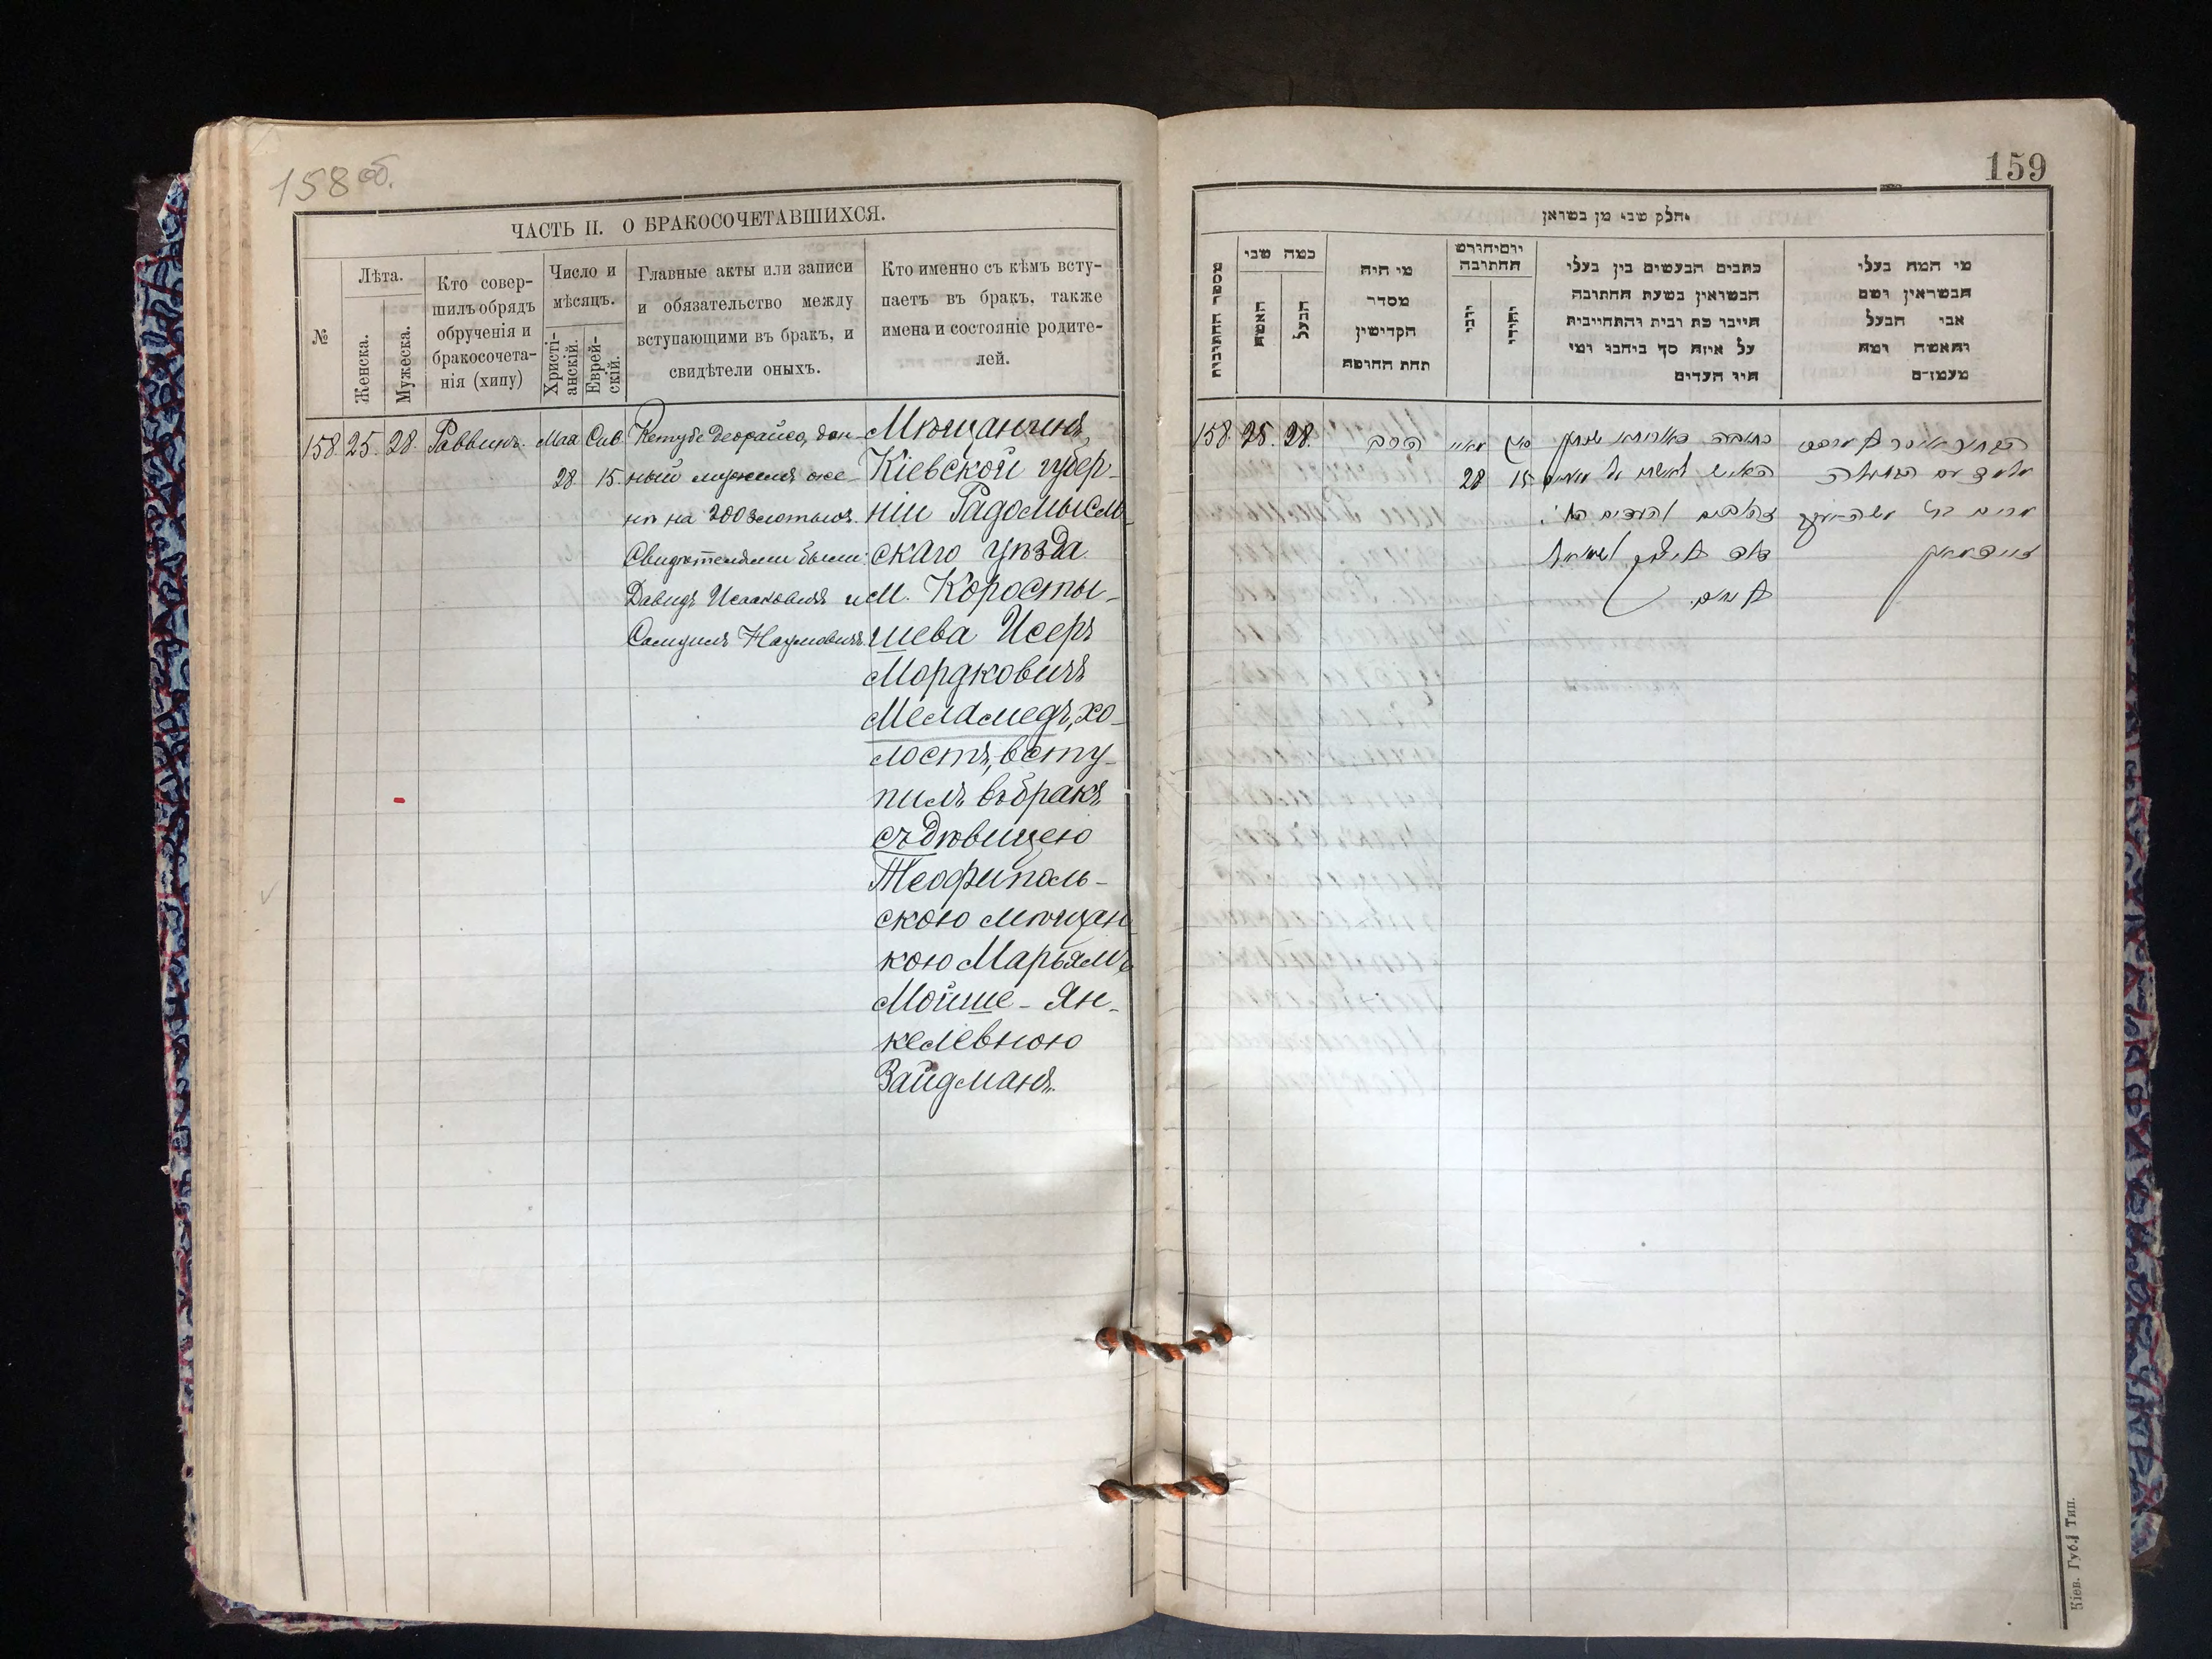 158 об.
ЧАСТЬ II. О БРАКОСОЧЕТАВШИХСЯ.
№
Лѣта.
Женска.
Мужеска.
Кто совер-
шилъ обрядъ
обрученія и
бракосочета-
нія (хипу)
Число и
мѣсяцъ.
Христі-
анскій.
Еврей-
скій.
Главные акты или записи
и обязательство между
вступающими въ бракъ, и
свидѣтели оныхъ.
Кто именно съ кѣмъ всту-
паетъ въ бракъ, также
имена и состояніе родите-
лей.
158. 25. 28. Раввинъ. Мая 28 Сив. 15.
Кетубе деорайсо, дан-
ный мужемъ же-
нѣ на 200 злотыхъ.
Свидѣтелями были:
Давидъ Исааковичъ и
Самуилъ Наумовичъ.
Мѣщанинъ
Кіевской губер-
ніи Радомысль-
скаго уѣзда
м. Коросты-
шева Исеръ
Мордковичъ
Меламедъ, хо-
лостъ, всту-
пилъ въ бракъ
съ дѣвицею
Теофиполь-
скою мѣщан-
кою Марьямъ
Мойше-Ян-
келевною
Зайдманъ.
159
חלק שני מן נשואין
מספר החתונות
כמה שני
האשה
הבעל
מי היה
מסדר
הקדושין
תחת החופה
יום וחודש
החתונה
נוצרי
יהודי
כתבים הנעשים בין בעלי
הנשואין בשעת החתונה
היינו כת ובית והתחייבות
על איזה סך ניתנו ומי
היו העדים
מי המה בעלי
הנשואין ושם
אבי הבעל
והאשה ומה
מעמדם
158. 25. 28. הרב מאי 28 סיון 15
כתובה דאורייתא שנתן
האיש לאשתו
זהובים והעדים הי׳.
דוד
מלמד עם הבתולה
מרים בת משה יענקל
זיידמאן
Кіев. Губ. Тип.